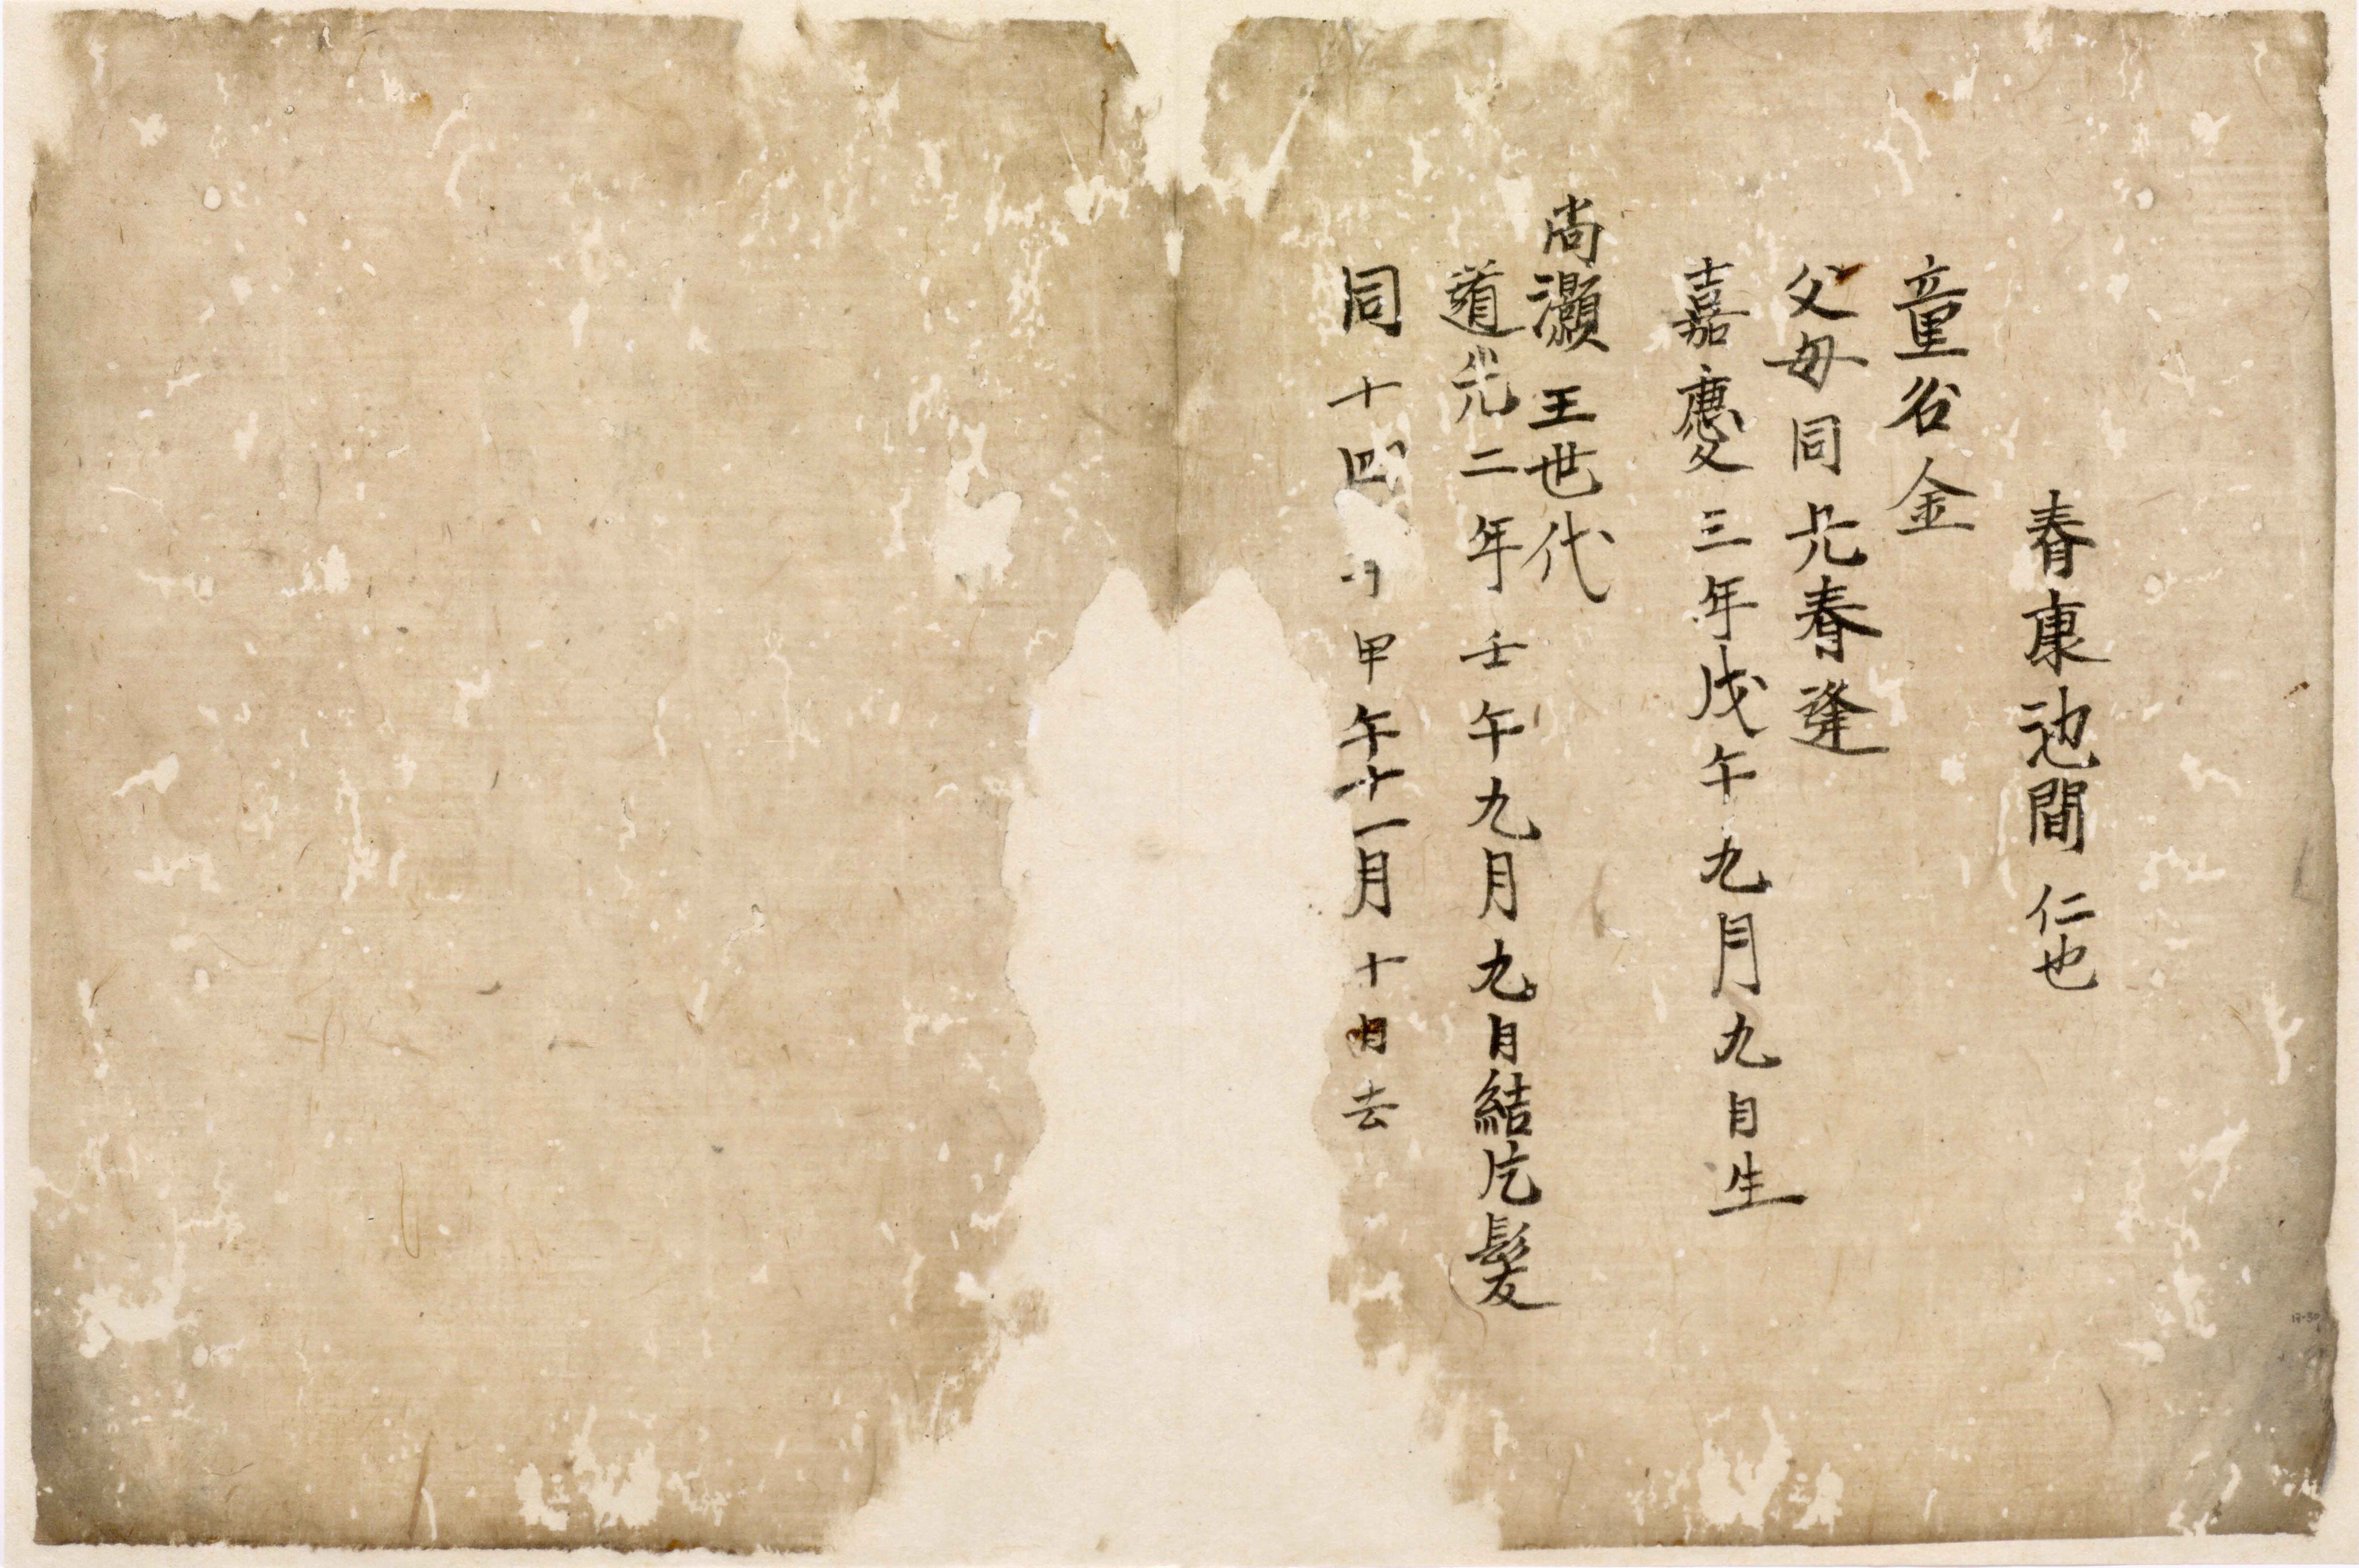 春康池間仁也
童名金
父母同兄春逢
嘉慶三年戊午九月九日生
尚灝王世代
道光二年壬午九月九日結片髪
同十四 甲午十一月十日去